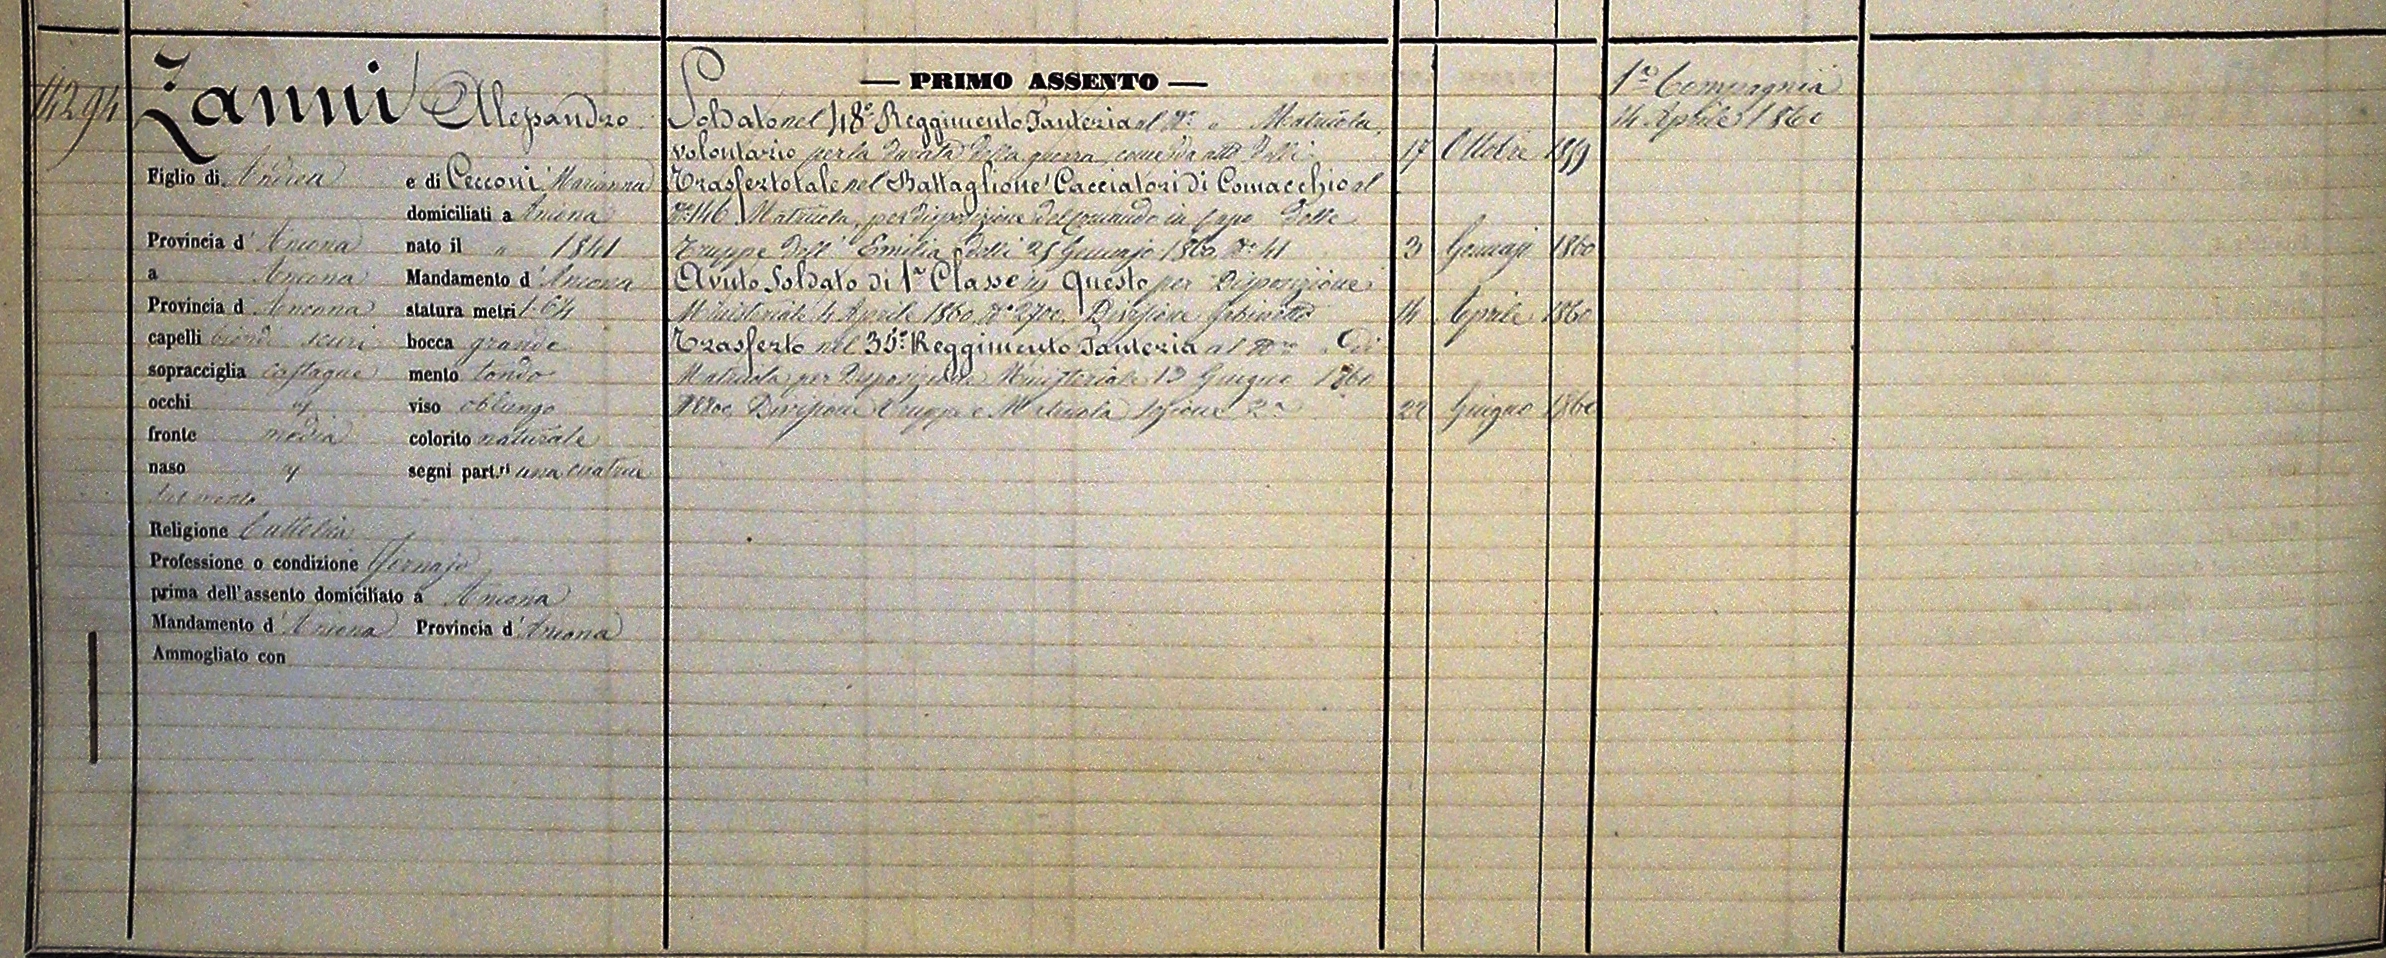 14294
Zanni Alessandro
Figlio di Andrea e di Cecconi Marianna
domiciliati a Ancona
Provincia d' Ancona nato il " 1841
a Ancona Mandamento d' Ancona
Provincia d Ancona statura metri 1.64
capelli biondi scuri bocca grande
sopracciglia castague mento tondo
occhi viso oblungo
fronte media colorito naturale
naso segni part.ri una cicatrice
nel mento
Religione Cattolica
Professione o condizione Fornajo
prima dell'assento domiciliato a Ancona
Mandamento d' Ancona Provincia d' Ancona
Ammogliato con
— PRIMO ASSENTO —
Soldato nel 48º Reggimento Fanteria al Nº " Matricola,
volontario per la durata della guerra, come da atto delli 17 Ottobre 1859
Trasferto tale nel Battaglione Cacciatori di Comacchio al
Nº 146 Matricola, per disposizione del Comando in Capo delle
Truppe dell' Emilia delli 25 Gennajo 1860, Nº 41 3 Gennajo 1860
Avuto Soldato di 1ª Classe in Questo per Disposizione
Ministeriale 4 Aprile 1860 Nº 2700, Divisione Gabinetto 14 Aprile 1860
Trasferto nel 35º Reggimento Fanteria al Nº di
Matricola per Disposizione Ministeriale 13 Giugno 1860
Divisione Truppa e Matricola Sezione 2ª 22 Giugno 1860
1ª Compagnia
14 Aprile 1860